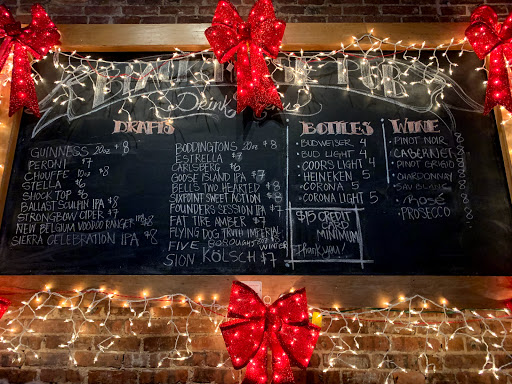 Drink
PUB
Drink Menu
DRAFTS
GUINNESS 20oz $8
PERONI $7
CHOUFFE 10oz $8
STELLA $6
SHOCK TOP $6
BALLAST SCULPIN IPA $8
STRONGBOW CIDER $7
NEW BELGIUM VOODOO RANGER IPA $8
SIERRA CELEBRATION IPA $8
BODDINGTONS 20oz $8
ESTRELLA $7
CARLSBERG $6
GOOSE ISLAND IPA $7
BELLS TWO HEARTED $8
SIXPOINT SWEET ACTION $8
FOUNDERS SESSION IPA $7
FAT TIRE AMBER $7
FLYING DOG TRUTH IMPERIAL
FIVE BOROUGHS WINTER
SION KÖLSCH $7
BOTTLES
•BUDWEISER 4
•BUD LIGHT 4
•COORS LIGHT 4
•HEINEKEN 5
•CORONA 5
•CORONA LIGHT 5
$15 CREDIT
CARD
MINIMUM
Thank you!
WINE
•PINOT NOIR 8
•CABERNET 8
•PINOT GRIGIO 8
•CHARDONNAY 8
•SAV BLANC 8
•ROSÉ 8
•PROSECCO 8